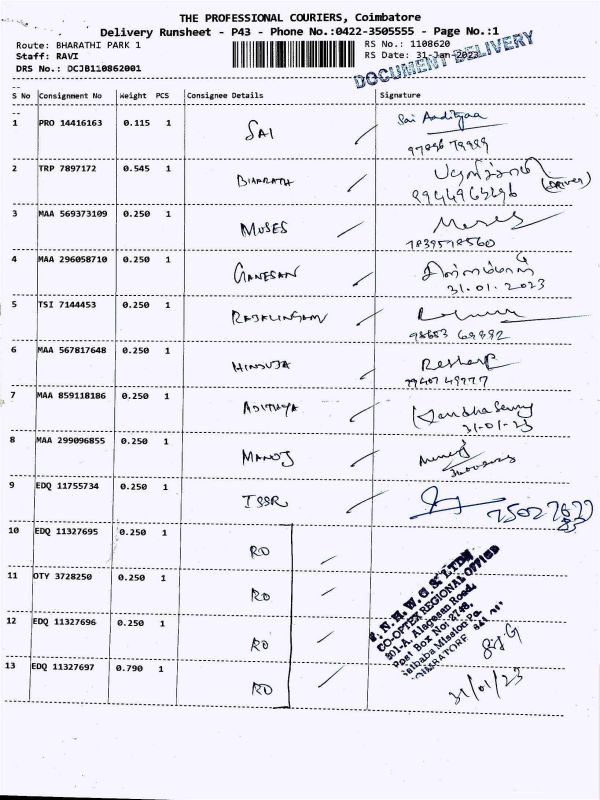 THE PROFESSIONAL COURIERS, Coimbatore
Delivery Runsheet - P43 - Phone No.:0422-3505555 - Page No.:1
Route: BHARATHI PARK 1
RS No.: 1108620
Staff: RAVI
RS Date: 31-Jan-2023
DRS No.: DCJB110862001
DOCUMENT DELIVERY
S No Consignment No Weight PCS Consignee Details Signature
1 PRO 14416163 0.115 1 SAI Sai Aadityaa
2 TRP 7897172 0.545 1 BHARATH
(DRIVER)
3 MAA 569373109 0.250 1 MUSES Muses
7839578560
4 MAA 296058710 0.250 1 GANESAN
31.01.2023
5 TSI 7144453 0.250 1 RAJALINGAM
6 MAA 567817648 0.250 1 HINDUJA
7 MAA 859118186 0.250 1 ADITHYA
31-01-23
8 MAA 299096855 0.250 1 MANOJ
9 EDQ 11755734 0.250 1 ISSR
10 EDQ 11327695 0.250 1 RO
11 OTY 3728250 0.250 1 RO
12 EDQ 11327696 0.250 1 RO
13 EDQ 11327697 0.790 1 RO
T.N.H.W.C.S. LTD.,
CO-OPTEX REGIONAL OFFICE
201-A, Alagesan Road,
Post Box No: 2748,
Saibaba Mission Po.
COIMBATORE 641
31/01/23